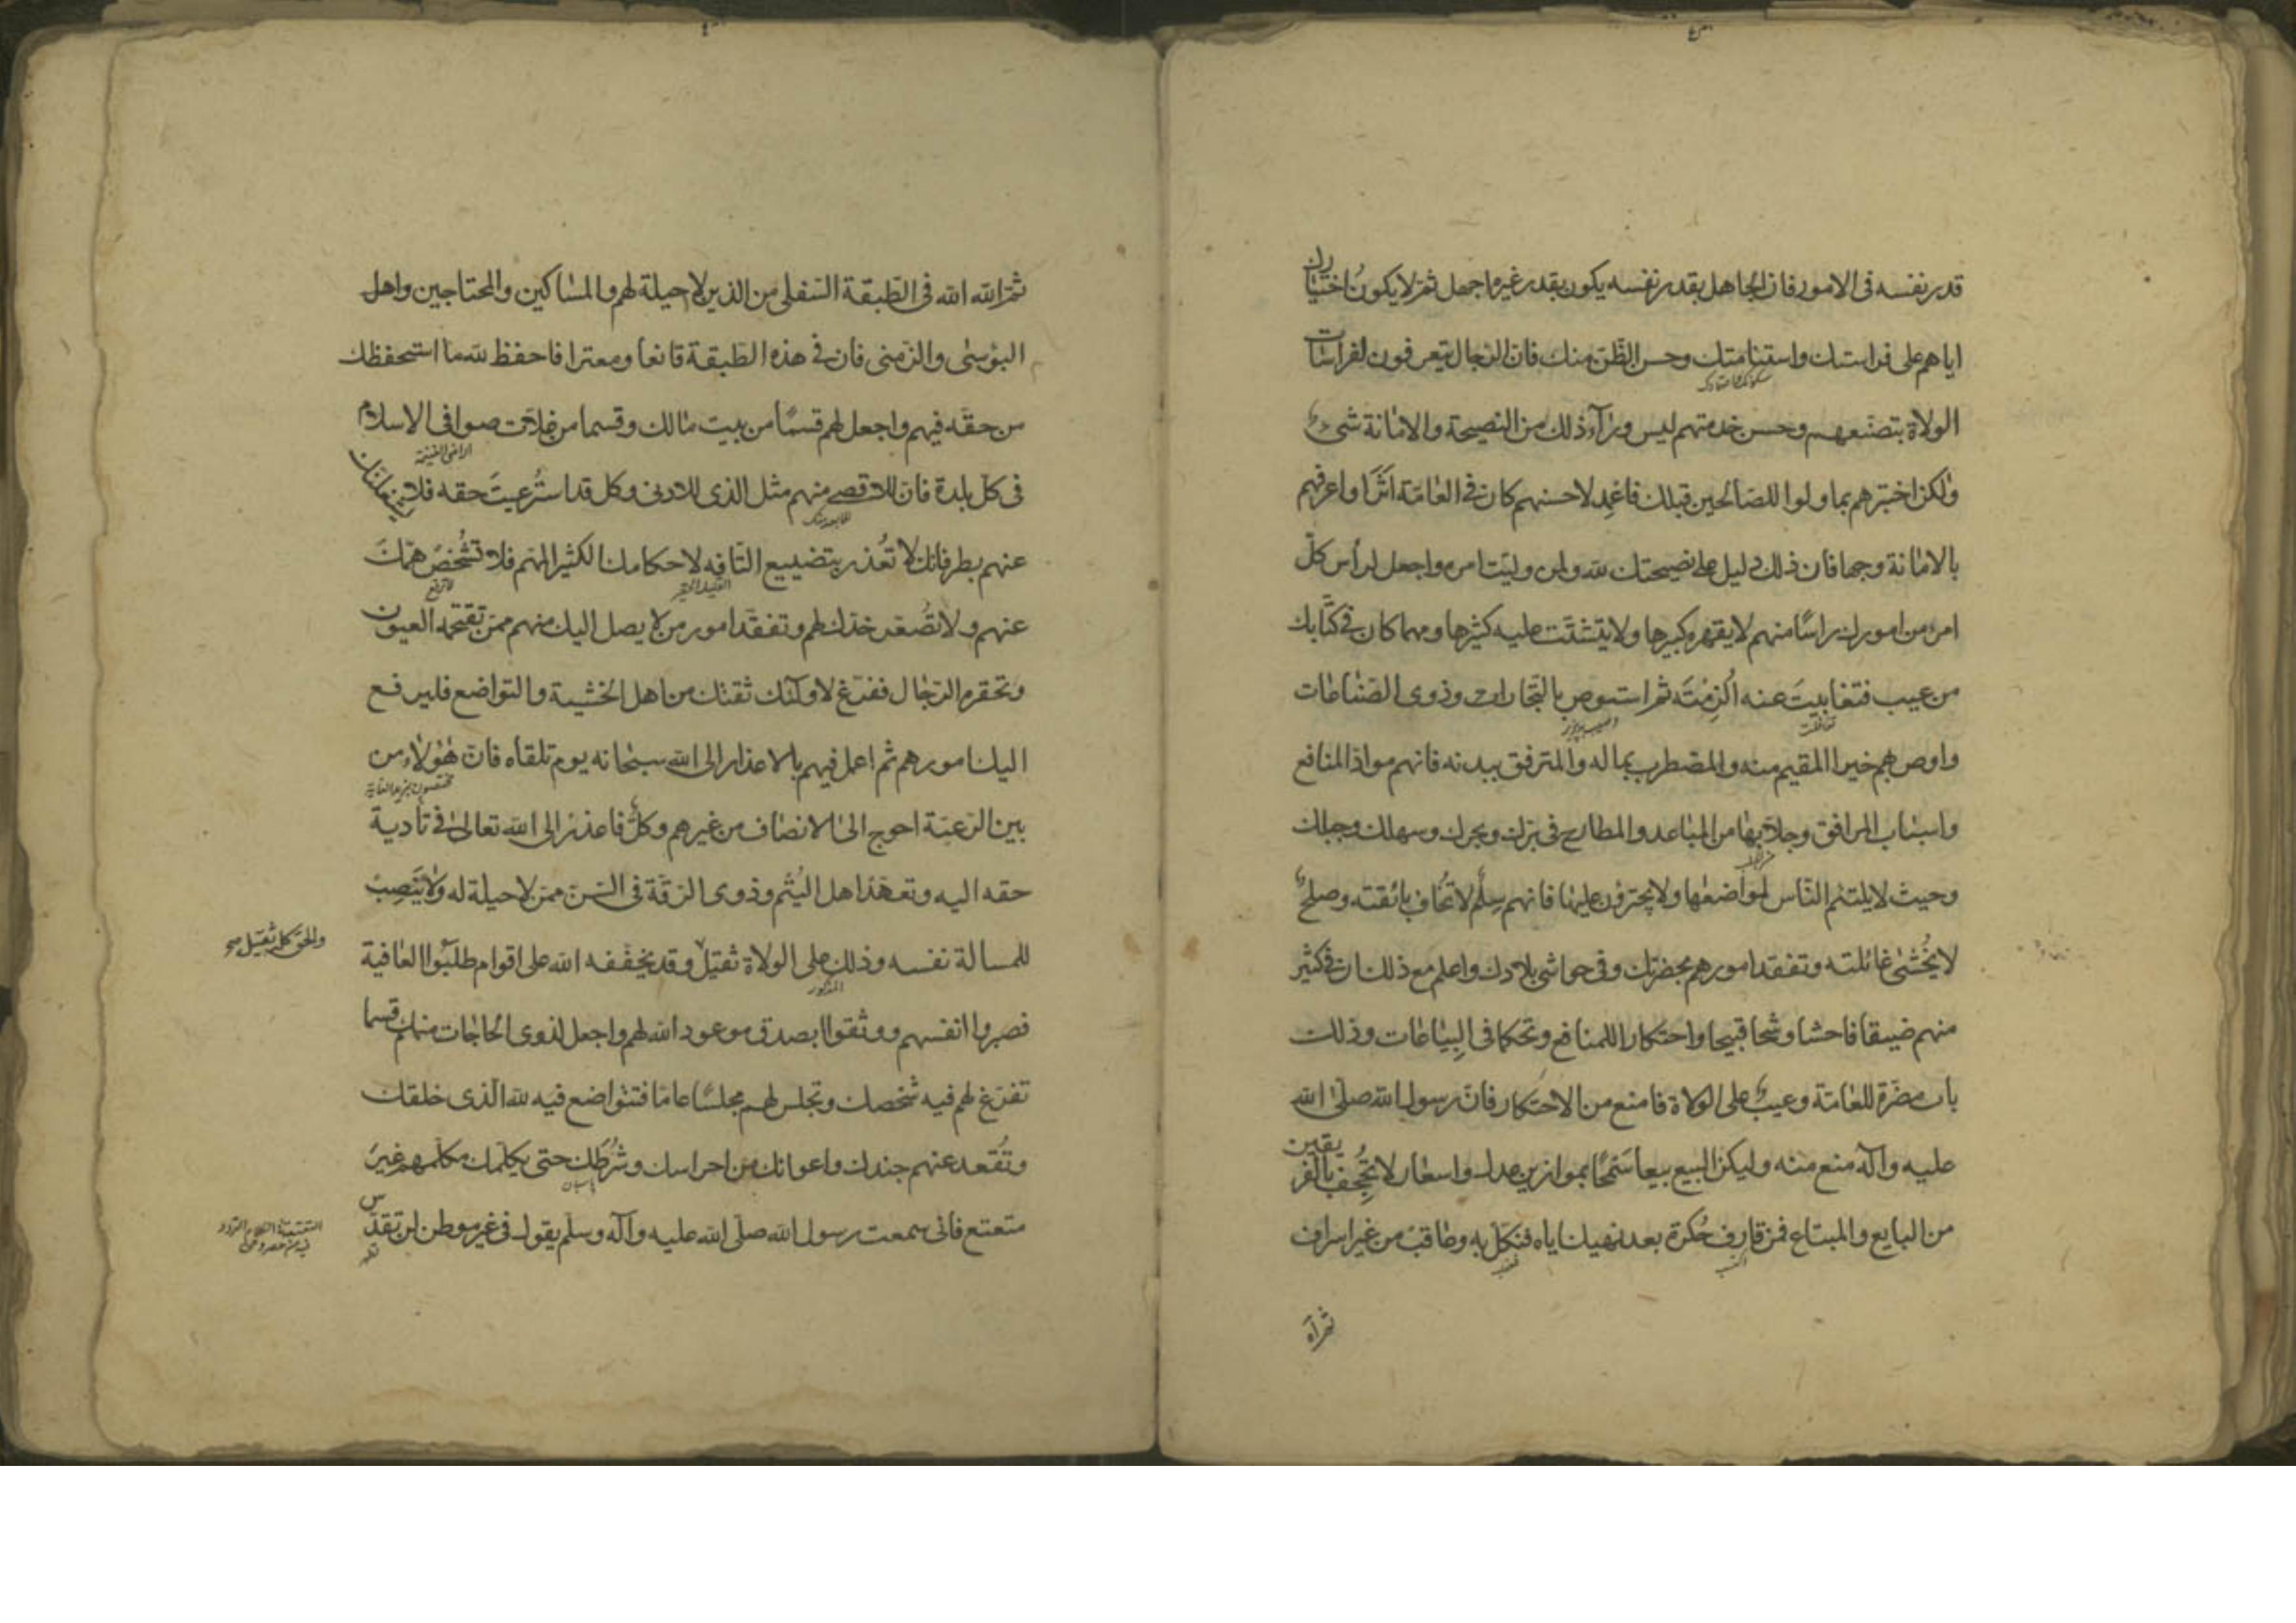 قدر نفسه فى الامور فان الجاهل بقدر نفسه يكون بقدر غيره اجهل ثمّ لا يكونُ اختيارك
اياهم على فراستك واستنامتك وحسن الظّن منك فانّ الرّجال يتعرفون لفراسات
الولاة بتصنّعهم وحسن خدمتهم ليس وراۤء ذلك من النصيحة والامانة شىء
ولكن اختبرهم بما ولوا للصّالحين قبلك فاعْمِد لاحسنهم كان فى العامّة اثرًا واعرفهم
بالامانة وجها فان ذلك دليل على نصيحتك لله ولمن وليّت امره واجعل لرأس كلّ
امر من امورك راسًا منهم لا يقهره كبيرها ولا يتشتّت عليه كثيرها ومهما كان فى كتّابك
من عيب فتغابيتَ عنه اُلزِمْتَه ثم استوص بالتّجارات وذوى الصّناعات
واوص بهم خيرا المقيم منه والمضطرب بماله والمترفق ببدنه فانهم مواد المنافع
واسباب المرافق وجلّابها من المباعد والمطارح فى برّك وبحرك وسهلك وجبلك
وحيث لا يلتئم النّاس لمواضعها ولا يجترؤن عليها فانهم سِلْم لا تُخاف بائقته وصلحٌ
لا يُخْشى غائلته وتفقد امورهم بحضرتك وفى حواشى بلادك واعلم مع ذلك ان فى كثير
منهم ضيقا فاحشا وشحا قبيحا واحتكارا للمنافع وتحكما فى البِياعات وذلك
باب مضرّة للعامّة وعيبٌ على الولاة فامنع من الاحتكار فانّ رسول الله صلّى الله
عليه وآله منع منه وليكن البيع بيعا سَمْحًا بموازين عدل واسعار لا تُجْحِف بالفريقين
من البايع والمبتاع فمن قارف حُكرة بعد نهيك اياه فنكّل به وعاقبْ من غير اسراف
ثمّ الله
ثمّ الله الله فى الطّبقة السّفلى من الذين لا حيلة لهم والمساكين والمحتاجين واهل
البؤسى والزّمنى فان فى هذه الطّبقة قانعا ومعترا فاحفظ لله ما استحفظك
من حقّه فيهم واجعل لهم قسمًا من بيت مالك وقسما من غلات صوافى الاسلام
فى كلّ بلدة فانّ للاقصى منهم مثل الذى للادنى وكل قد استُرعيتَ حقه فلا يشغلنّك
عنهم بطر فانك لا تُعْذر بتضييع التّافه لاحكامك الكثير المهم فلا تُشْخص همّك
عنهم ولا تُصَعّر خدّك لهم وتفقّد امور من لا يصل اليك منهم ممن تقتحمه العيون
وتحقره الرّجال ففرّغ لاولٰئك ثقتك من اهل الخشية والتواضع فليرفع
اليك امورهم ثم اعمل فيهم بالاعذار الى الله سبحانه يوم تلقاه فانّ هٰؤلاء من
بين الرّعيّة احوج الى الانصاف من غيرهم وكلٌّ فاعذر الى الله تعالى فى تأدية
حقه اليه وتعهّد اهل اليُتْم وذوى الرّقّة فى السّن ممن لا حيلة له ولا ينْصِبُ
للمسالة نفسه وذلك على الولاة ثقيل وقد يخفّفه الله على اقوام طلبوا العافية
والحق كله ثقيل صح
فصبروا انفسهم ووثقوا بصدق موعود الله لهم واجعل لذوى الحاجات منك قسما
تفرّغ لهم فيه شخصك وتجلس لهم مجلسًا عامّا فتتواضع فيه لله الّذى خلقك
وتُقْعد عنهم جندك واعوانك من احراسك وشُرَطِك حتى يكلّمك مكلّمهم غيرَ
متعتع فانى سمعت رسول الله صلّى الله عليه وآله وسلّم يقول فى غير موطن لن تقدّس